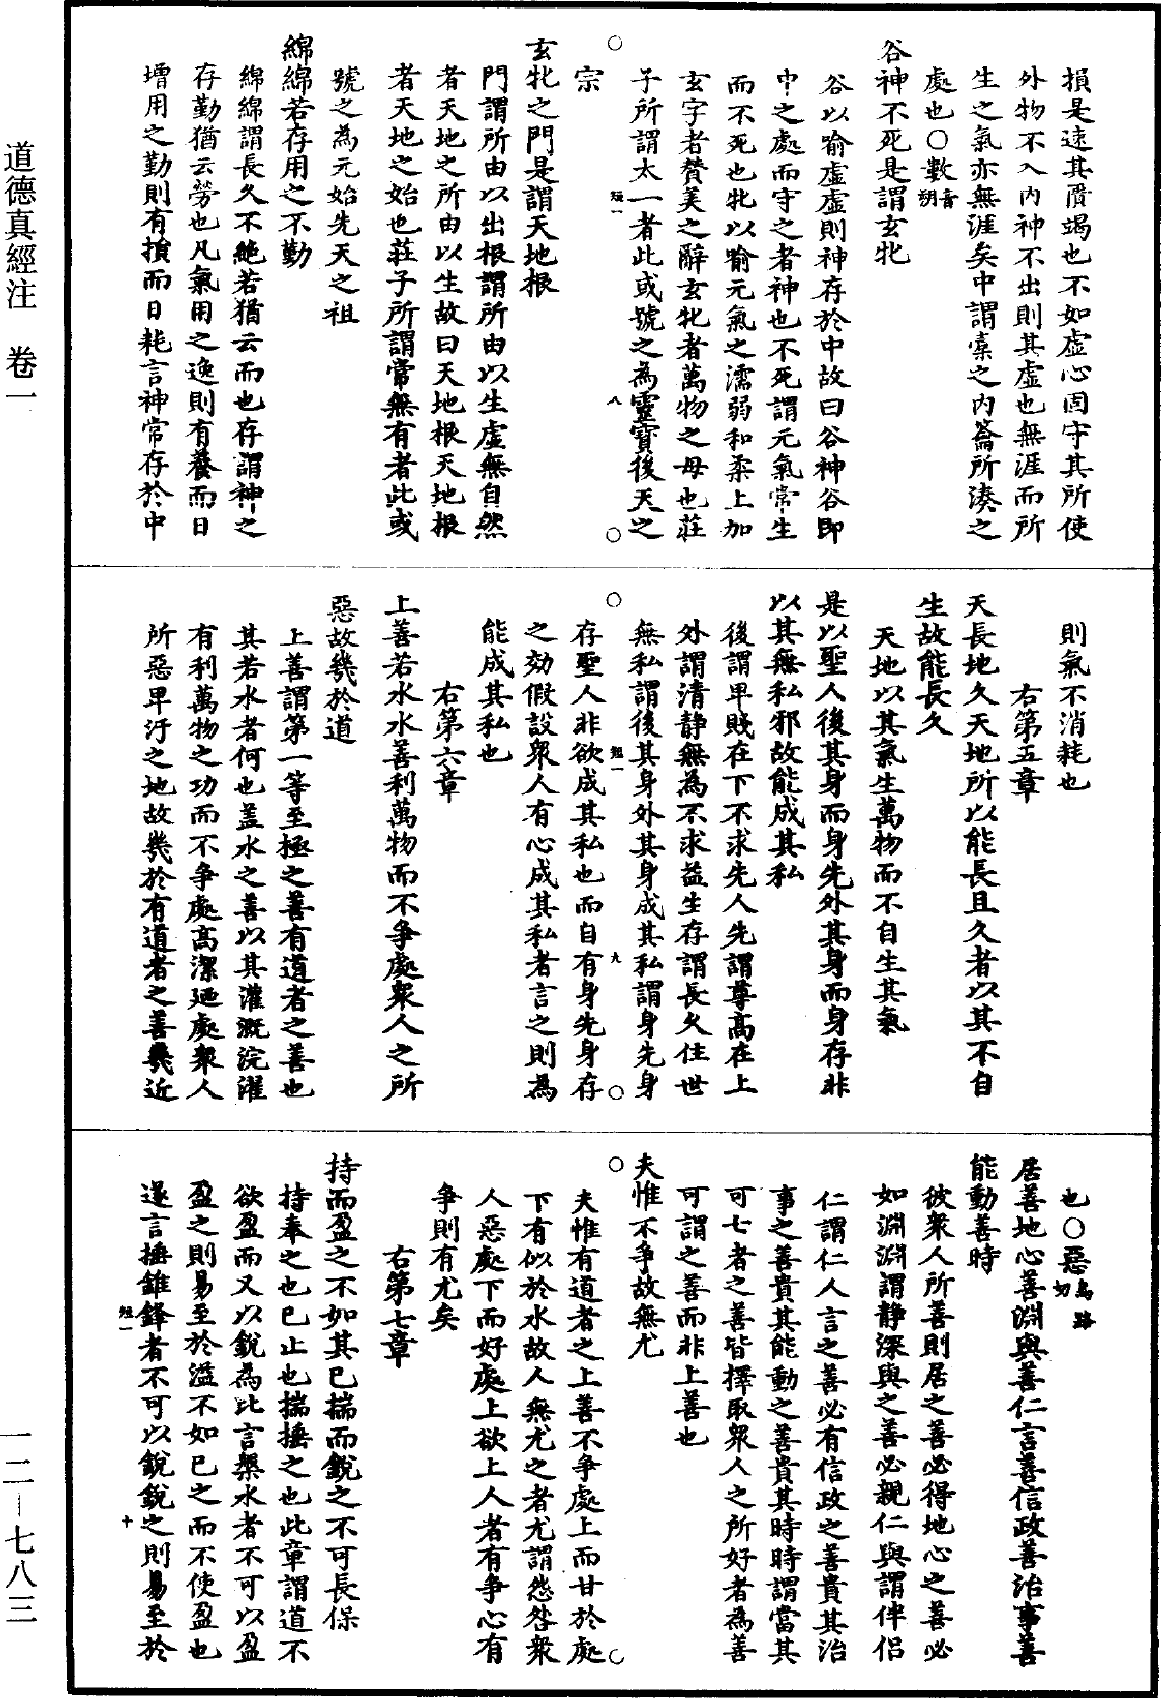 損是速其匱竭也不如虛心固守其所使
外物不入內神不出則其虛也無涯而所
生之氣亦無涯矣中謂橐之內籥所湊之
處也○數音朔
谷神不死是謂玄牝
谷以喻虛虛則神存於中故曰谷神谷即
中之處而守之者神也不死謂元氣常生
而不死也牝以喻元氣之濡弱和柔上加
玄字者贊美之辭玄牝者萬物之母也莊
子所謂太一者此或號之為靈寶後天之
短一 八
宗
玄牝之門是謂天地根
門謂所由以出根謂所由以生虛無自然
者天地之所由以生故曰天地根天地根
者天地之始也莊子所謂常無有者此或
號之為元始先天之祖
綿綿若存用之不勤
綿綿謂長久不絕若猶云而也存謂神之
存勤猶云勞也凡氣用之逸則有養而日
增用之勤則有損而日耗言神常存於中
則氣不消耗也
右第五章
天長地久天地所以能長且久者以其不自
生故能長久
天地以其氣生萬物而不自生其氣
是以聖人後其身而身先外其身而身存非
以其無私邪故能成其私
後謂卑賤在下不求先人先謂尊高在上
外謂清靜無為不求益生存謂長久住世
無私謂後其身外其身成其私謂身先身
短一 九
存聖人非欲成其私也而自有身先身存
之効假設衆人有心成其私者言之則為
能成其私也
右第六章
上善若水水善利萬物而不爭處衆人之所
惡故幾於道
上善謂第一等至極之善有道者之善也
其若水者何也蓋水之善以其灌溉浣濯
有利萬物之功而不爭處高潔廼處衆人
所惡卑汙之地故幾於有道者之善幾近
也○惡烏路切
居善地心善淵與善仁言善信政善治事善
能動善時
彼衆人所善則居之善必得地心之善必
如淵淵謂靜深與之善必親仁與謂伴侶
仁謂仁人言之善必有信政之善貴其治
事之善貴其能動之善貴其時時謂當其
可七者之善皆擇取衆人之所好者為善
可謂之善而非上善也
夫惟不爭故無尤
夫惟有道者之上善不爭處上而甘於處
下有似於水故人無尤之者尤謂怨咎衆
人惡處下而好處上欲上人者有爭心有
爭則有尤矣
右第七章
持而盈之不如其已揣而銳之不可長保
持奉之也已止也揣捶之也此章謂道不
欲盈而又以銳為比言槃水者不可以盈
盈之則易至於溢不如已之而不使盈也
遂言捶錐鋒者不可以銳銳之則易至於
短一 十
道德真經注 卷一
一二－七八三